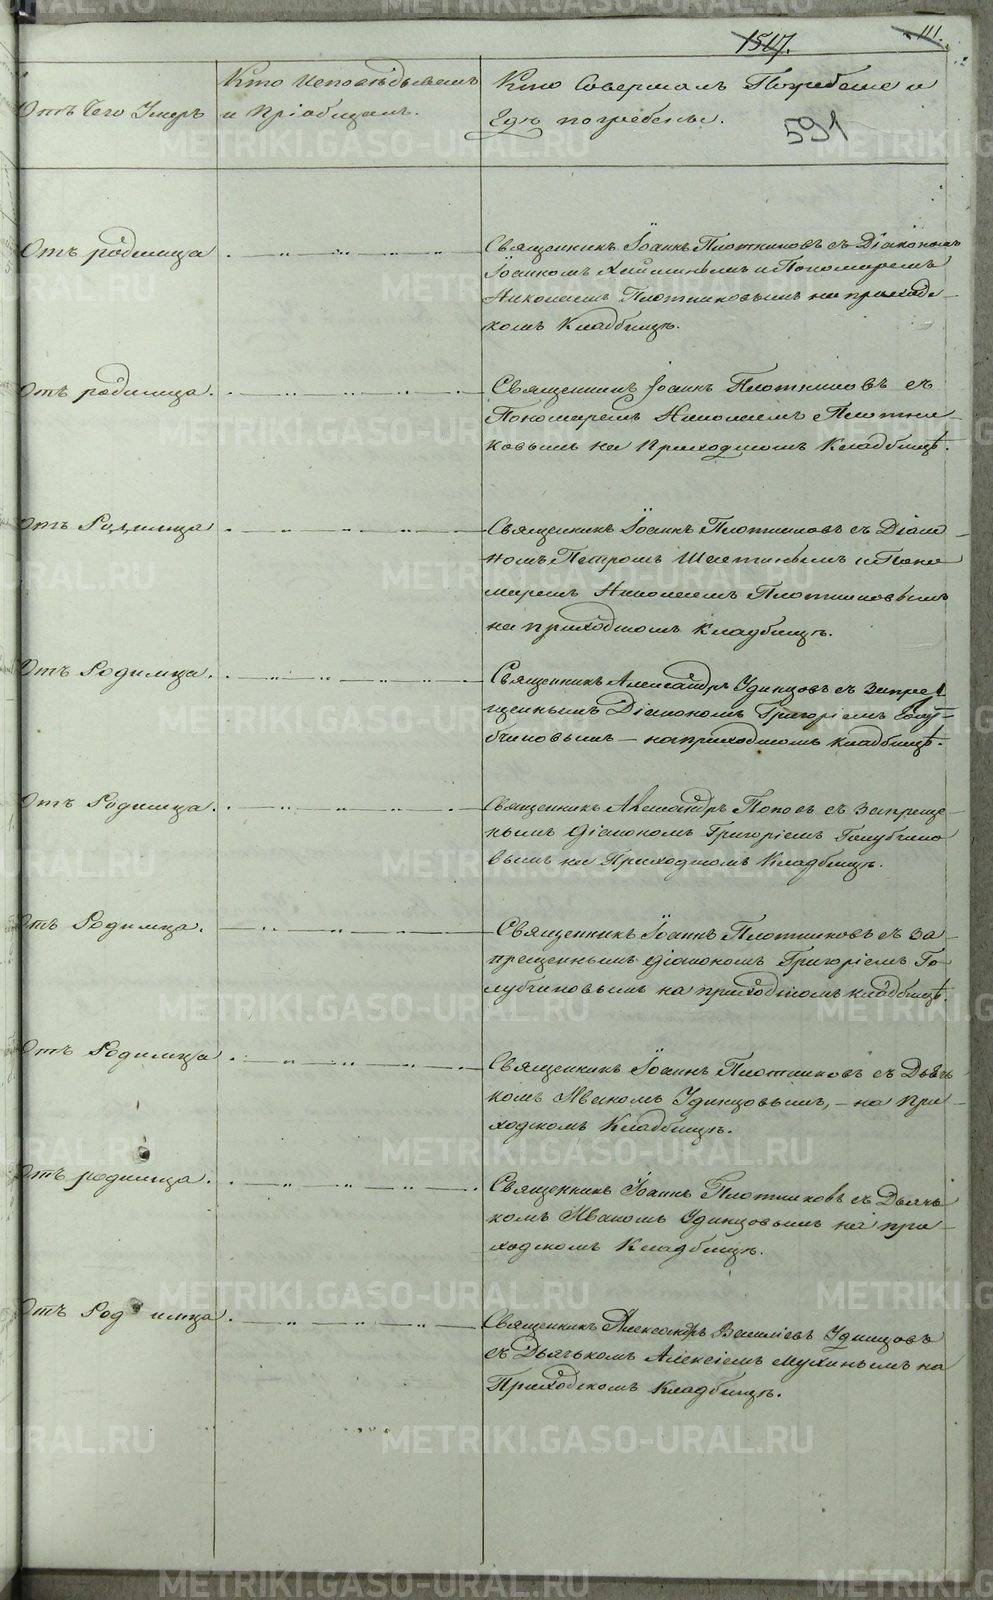 1517. 111.
591
Отъ Чего Умеръ
Кто Исповѣдывалъ
и Пріобщалъ.
Кто Совершалъ Погребеніе и
Гдѣ погребены.
Отъ родимца
Священникъ Іоаннъ Плотниковъ съ Діакономъ
Іоанномъ и Пономаремъ
Николаемъ Плотниковымъ на приход-
комъ Кладбищѣ.
Отъ родимца.
Священникъ Іоаннъ Плотниковъ съ
Пономаремъ Николаемъ Плотни-
ковымъ на Приходкомъ Кладбищѣ.
Отъ Родимца
Священникъ Іоаннъ Плотниковъ съ Діако-
номъ Петромъ и Поно-
маремъ Николаемъ Плотниковымъ
на приходкомъ кладбищѣ.
Отъ Родимца.
Священникъ Александръ Удинцовъ съ запре-
щеннымъ Діакономъ Григоріемъ Голу-
бчиковымъ — на приходкомъ кладбищѣ.
Отъ Родимца.
Священникъ Александръ Поповъ съ запреще-
нымъ діакономъ Григоріемъ Голубчико-
вымъ на Приходкомъ Кладбищѣ.
Отъ Родимца.
Священникъ Іоаннъ Плотниковъ съ за-
прещеннымъ діакономъ Григоріемъ Го-
лубчиковымъ на приходкомъ кладбищѣ.
Отъ Родимца
Священникъ Іоаннъ Плотниковъ съ Дьяч-
комъ Иваномъ Удинцовымъ, — на при-
ходкомъ Кладбищѣ.
Отъ родимца.
Священникъ Іоаннъ Плотниковъ съ Дьячь-
комъ Иваномъ Удинцовымъ на при-
ходкомъ Кладбищѣ.
Отъ Родимца.
Священникъ Александръ Васильевъ Удинцовъ
съ Дьячькомъ Алексіемъ Мухинымъ на
Приходскомъ Кладбищѣ.
METRIKI.GASO-URAL.RU